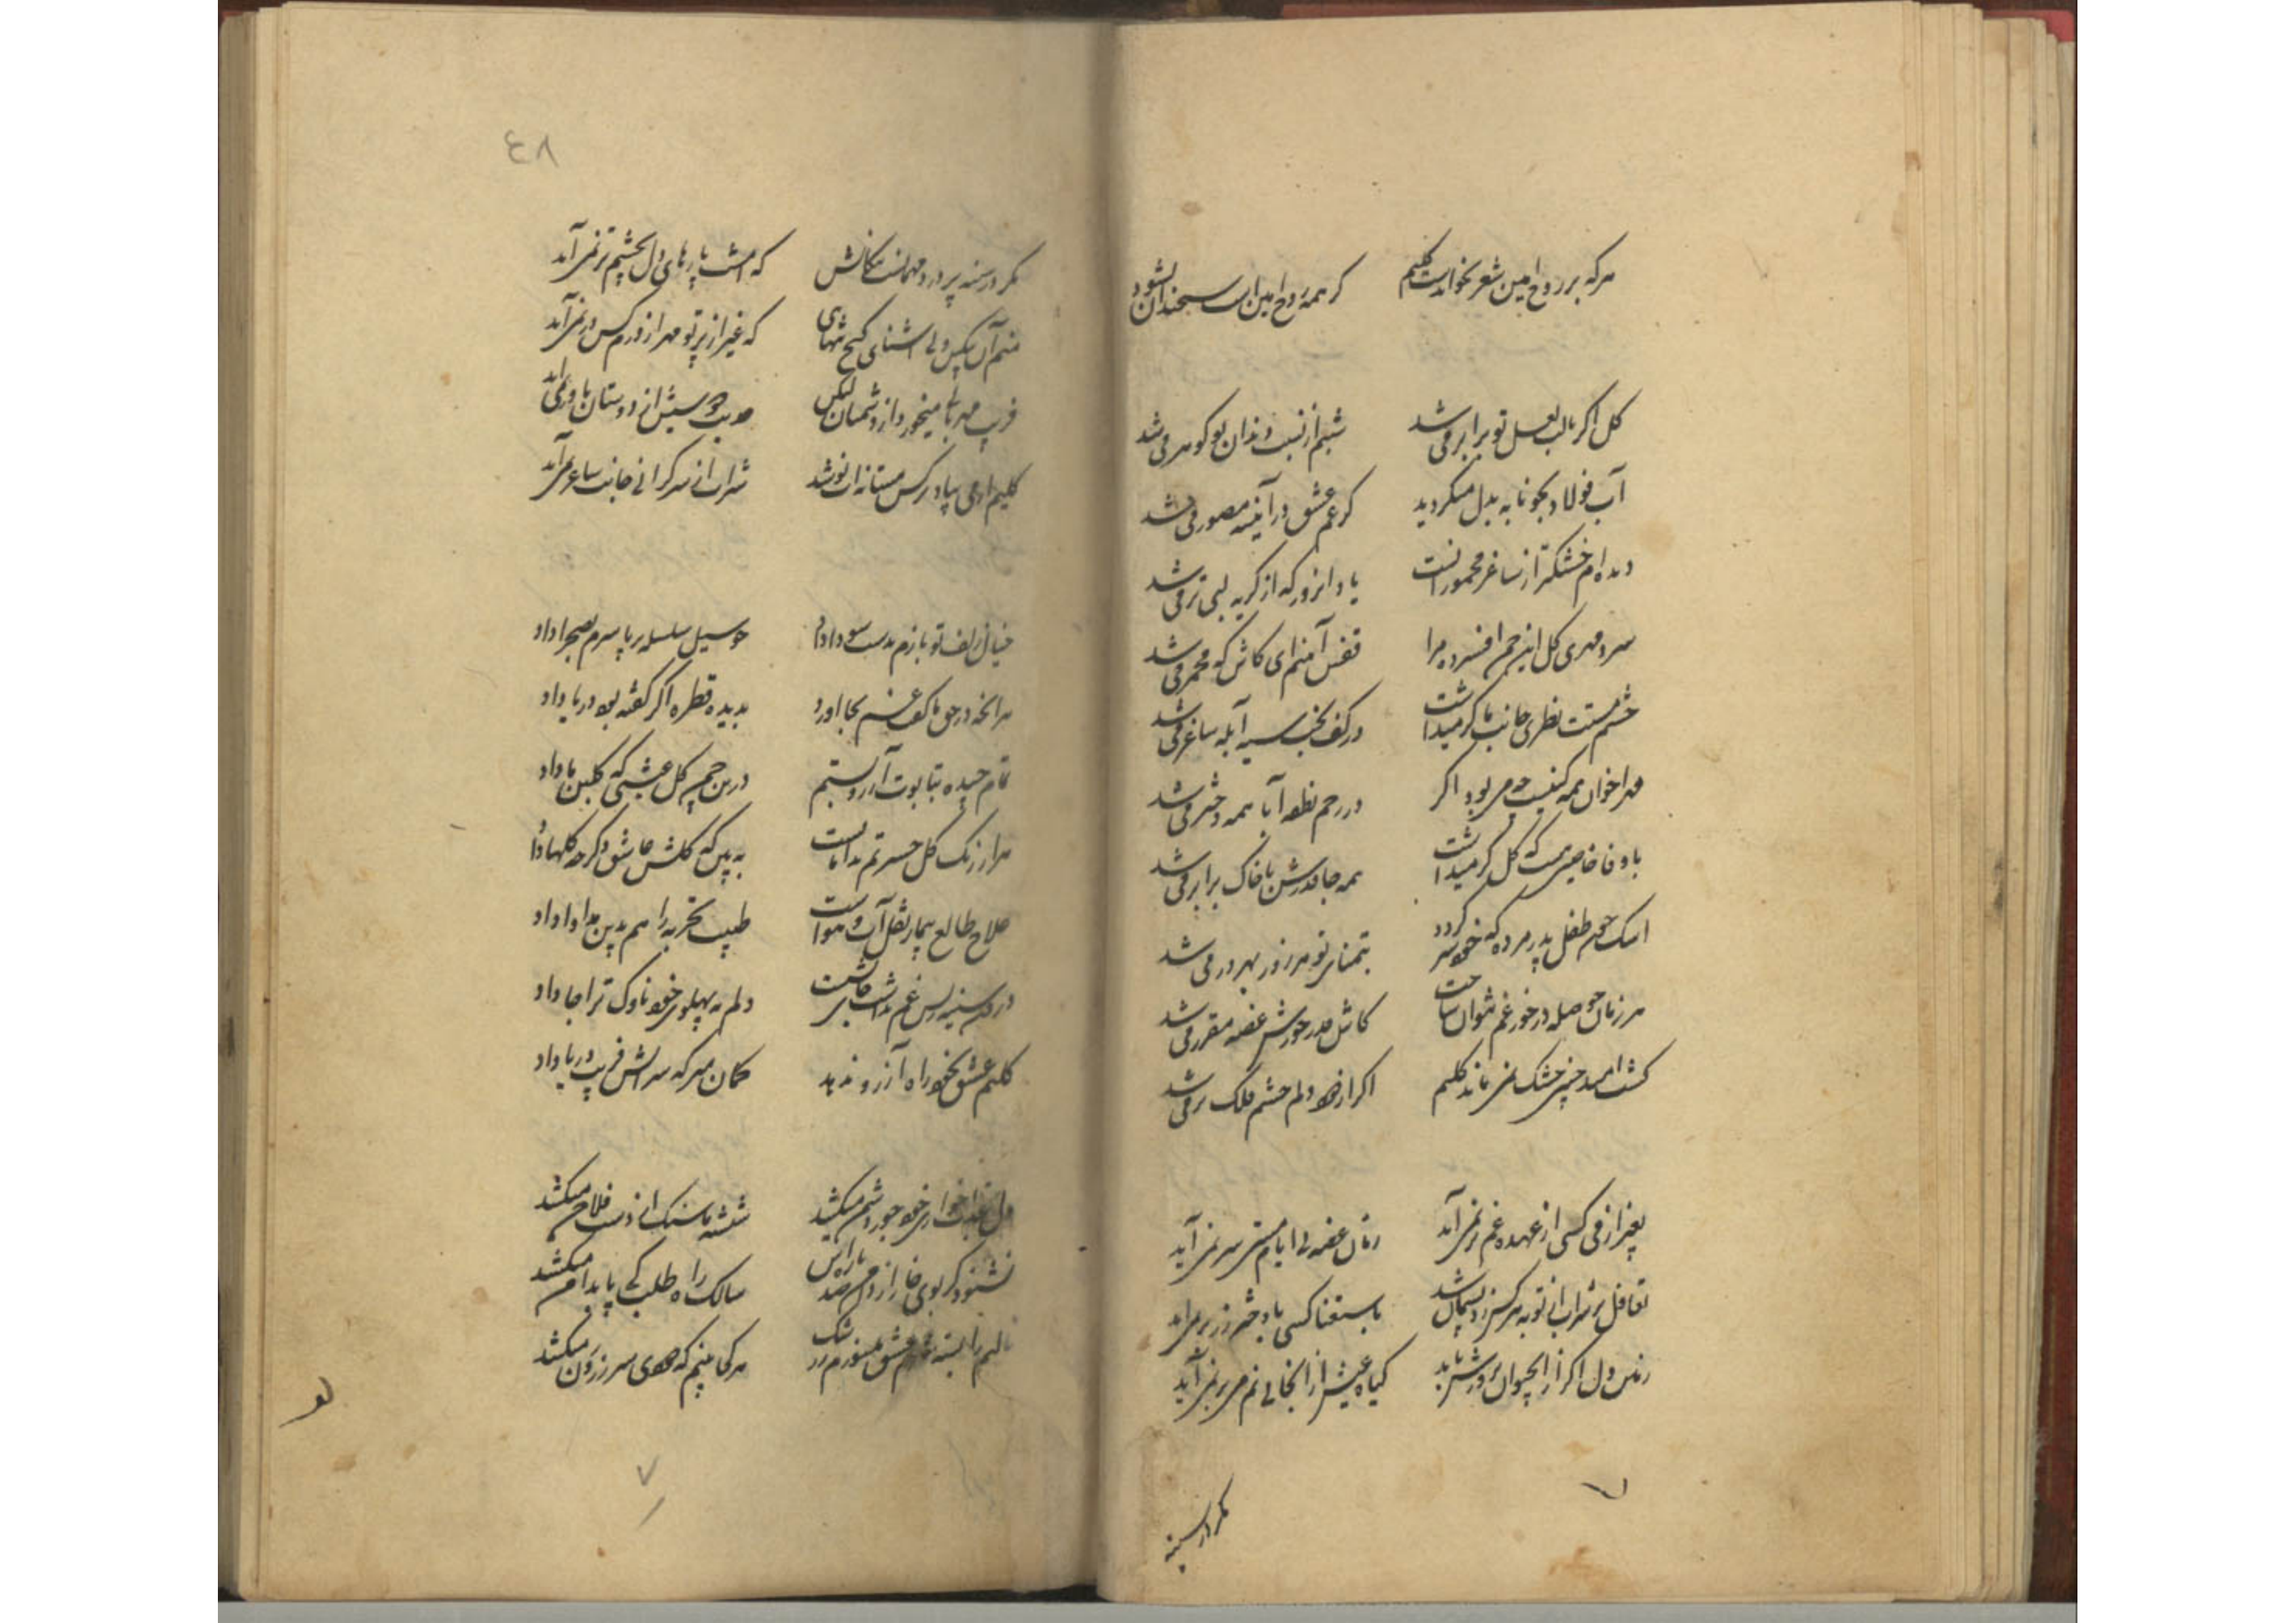 هرکه بر روح امین شعر نخواندست کلیم
گر همه روح امین است سخندان نشود
کل اکر با لب لعل تو برابر می شد
شبنم از نسبت دندان تو کوهر می شد
آب فولاد بخونابه بدل میکردید
کر غم عشق در آینه مصور می شد
دیده ام خشکتر از ساغر مخمورانست
یاد انروز که از کریه لبی تر می شد
سرد مهری کل این چمن افسرده مرا
قفس آهنم ای کاش که مجمر می شد
چشم مستت نظری جانب ما کر میداشت
در کف بخت سیه آبله ساغر می شد
مهر اخوان همه کیفیت می بود اکر
در رحم نطفه آبا همه دختر می شد
با وفا خاصیتی هست که کل کر میداشت
همه جا قدرش با خاک برابر می شد
اشک چون طفل پدر مرده که خودسر کردد
بتمنای تو هر روز بهر در می شد
هر زمان حوصله در خورد غم نتوان ساخت
کاش قدر خورش غصه مقرر می شد
کشت امید چنین خشک نمی ماند کلیم
اکر از دود دلم چشم فلک تر می شد
بغیر از می کسی از عهده غم بر نمی آید
زمان غصه بی ایام مستی سر نمی آید
تغافل بر شراب از توبه هرکس زد پشیمان شد
باستغنا کسی با دختر رز بر نمی آید
زمین دل اکر از آب حیوان پرورش یابد
کیاه عیش از آنجا بی نم می بر نمی آید
مکر در سینه
٤٨
مکر در سینه پر درد مهمانست پیکانش
که امشب پارهای دل بچشم تر نمی آید
منم آن بیکس ولی آشنای کنج تنهای
که غیر از پرتو مهر از درم کس در نمی آید
فریب مهربانی میخورد از دشمنان لیکن
حدیث دوستیش از دوستان باور نمی آید
کلیم ار می بیاد نرکس مستانه ات نوشد
شراب از سر کرانی جانب ساغر نمی آید
خیال زلف تو بازم بدست سودا داد
چو سیل سلسله بر پا سرم بصحرا داد
هر آنچه در حق ما کفت غم بجا آورد
بدیده قطره اکر کفته بود دریا داد
تمام چیده بتابوت آرزو بستم
درین چمن کل عیشی که کلبن ما داد
هزار رنک کل حسرتم بدامانست
ببین که کلشن عاشق دکر چه کلها داد
علاج طالع بیمار نقل آب و هواست
طبیب تجربه را هم بدین مداوا داد
درون سینه ز بس غم نداشت جای نشست
دلم به پهلوی خود ناوک ترا جا داد
کلیم عشق بخود راه آرزو ندهد
کمان مبر که سرابش فریب دریا داد
دل غذا خواری خود جور دشمن میکشد
شیشه ما سنک از دست فلاخن میکشد
نشنود کر بوی خار از دامن صد پاره اش
سالک راه طلب کی پا بدامن میکشد
هر کجا بینم که دودی سر ز روزن میکشد